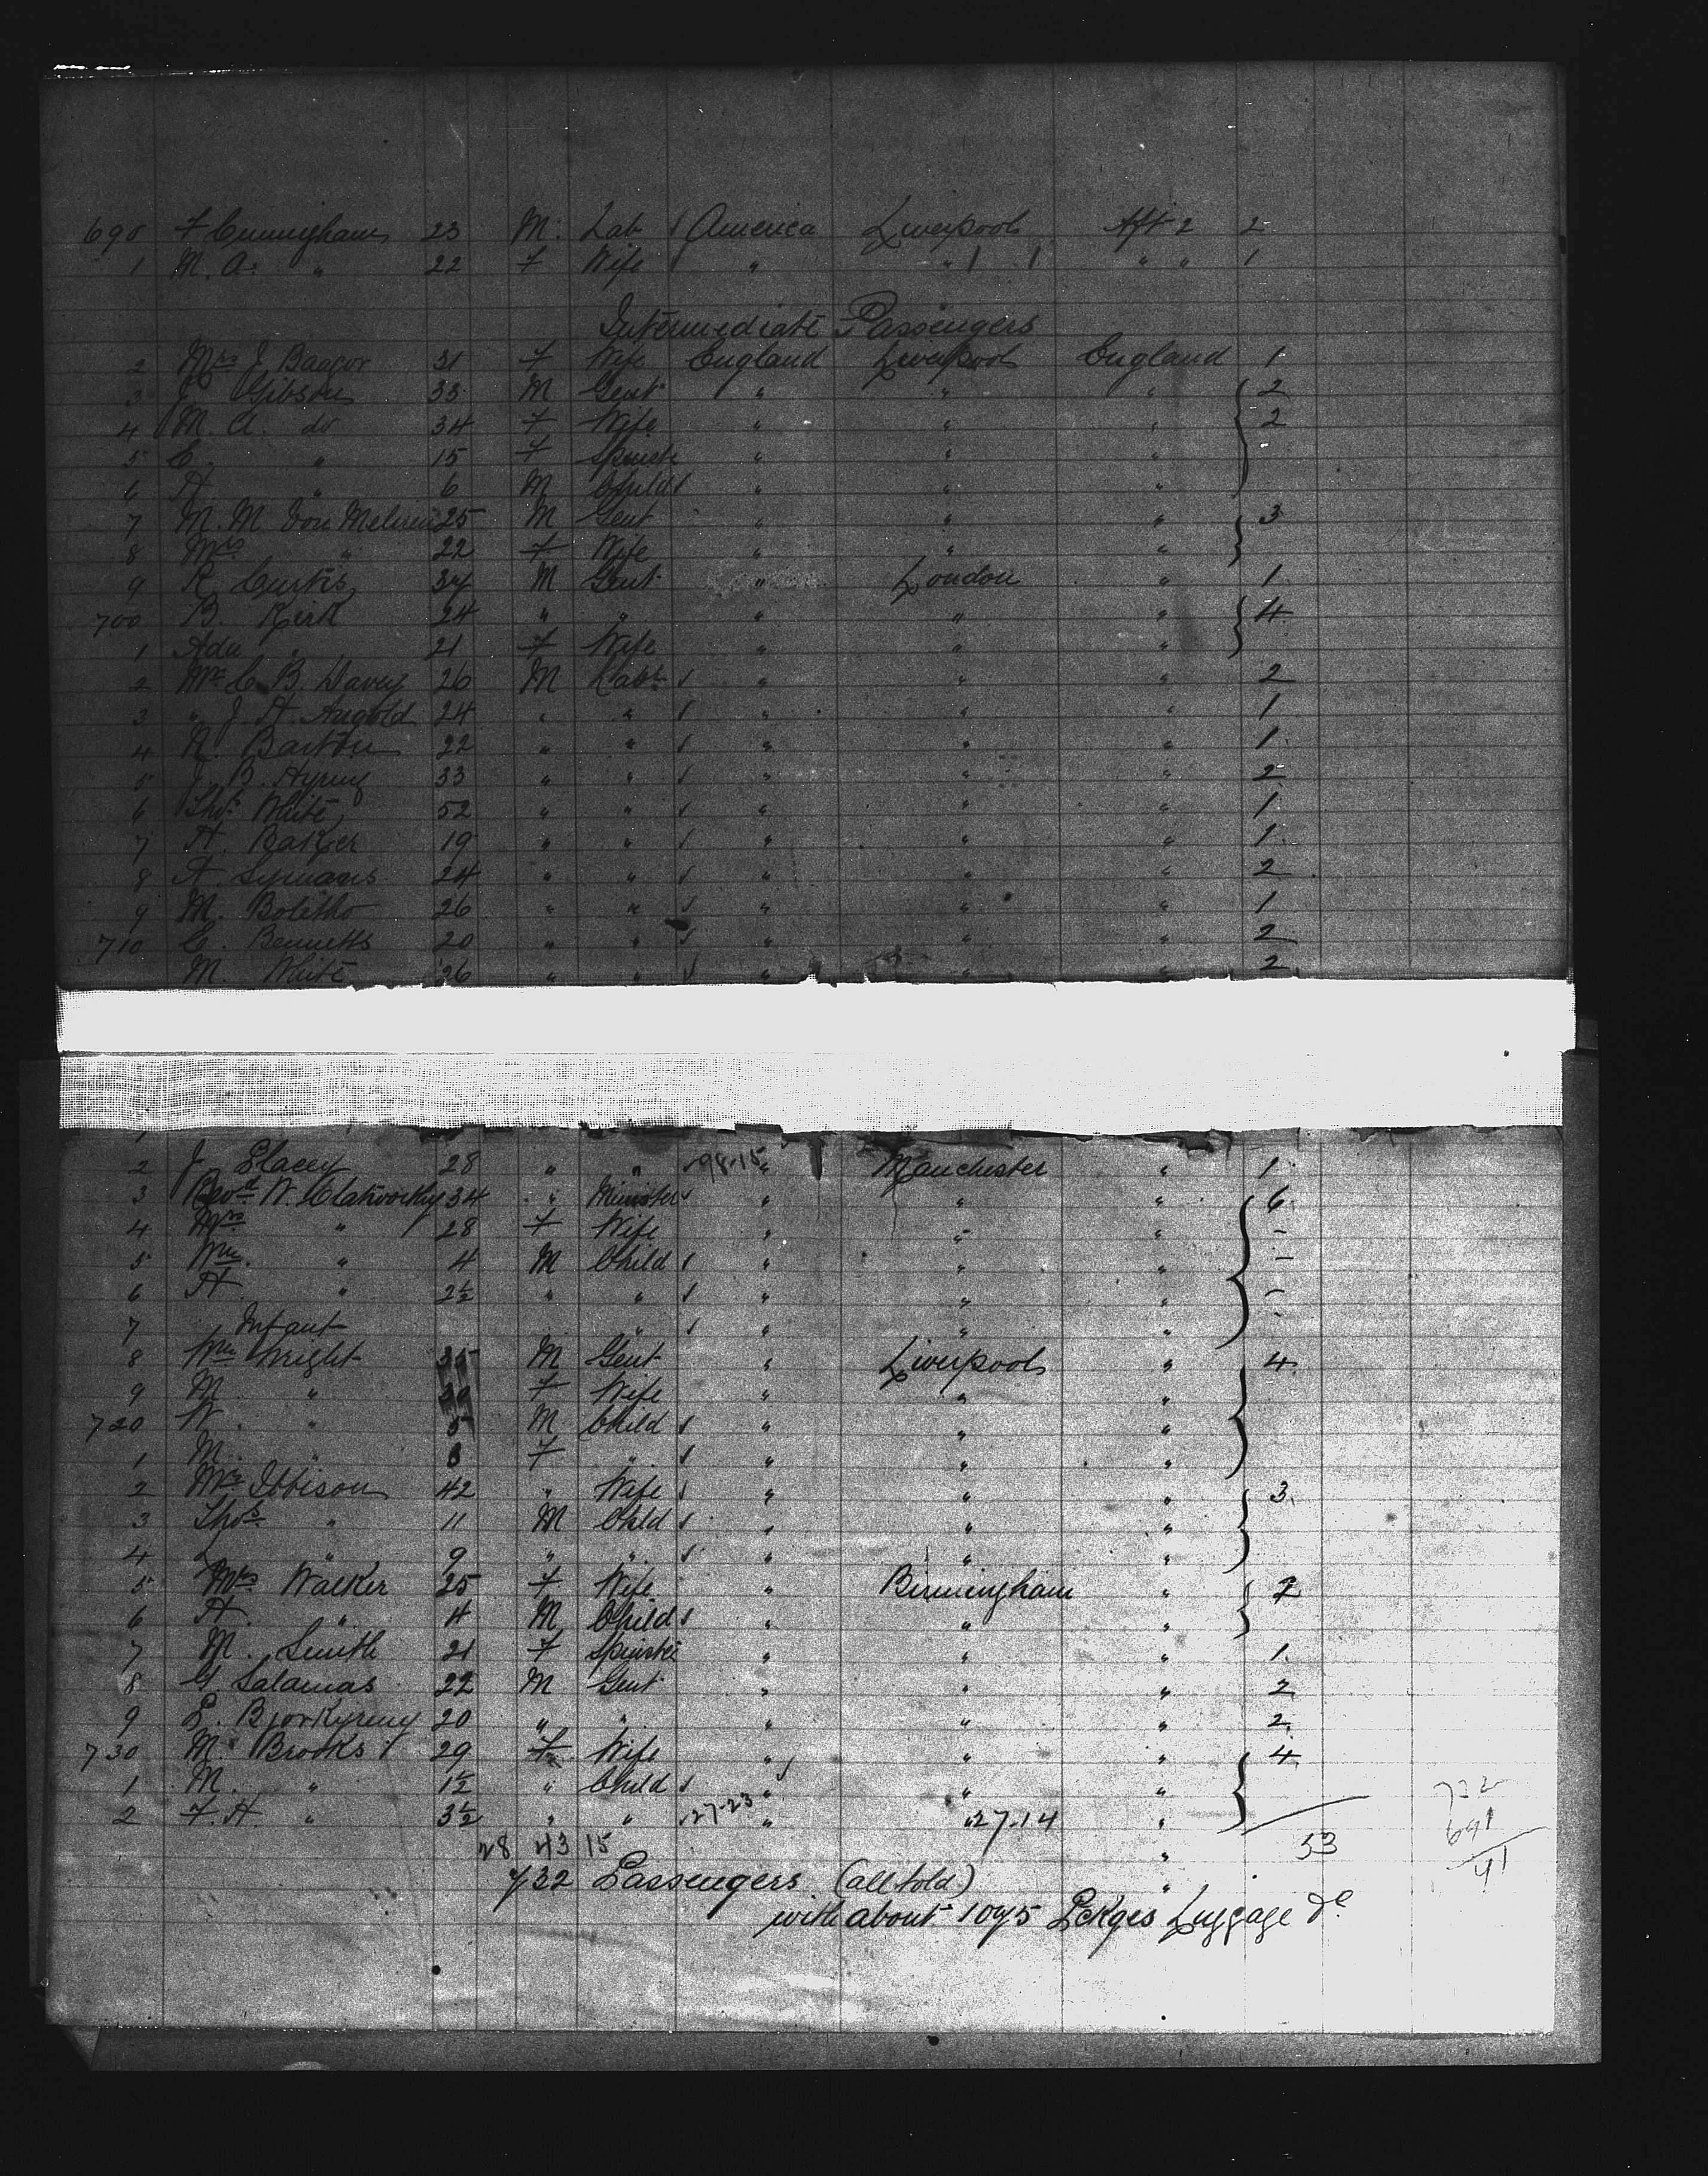 690 F Cuningham 23 M. Lab America Liverpool Aft 2 2
1 M. A. " 22 F Wife " " " " 1
Intermediate Passengers
2 Mrs J. Baggor 31 F Wife England Liverpool England 1
3 J Gibson 33 M Gent " " " 2
4 M. A. do 34 F Wife " " " 2
5 C. " 15 F Spinste " " "
6 A " 6 M Child " " "
7 M. M Von 25 M Gent " " " 3
8 Mrs " 22 F Wife " " "
9 R Curtis 34 M Gent " London " 1
700 B. Kirk 24 " " " " " 4
1 Ada " 21 F Wife " " "
2 Mr C. B. Davey 26 M Labr " " " 2
3 " J. H. Angold 24 " " " " " 1
4 R. Barton 22 " " " " " 1
5 J. B. 33 " " " " " 2
6 Thos White 52 " " " " " 1
7 A. Baker 19 " " " " " 1
8 A. Symons 24 " " " " " 2
9 M. Bolitho 26 " " " " " 1
710 C. Bennetts 20 " " " " " 2
M. White 26 " " " " " 2
2 J Stacey 28 " " 98-15 " Manchester " 1
3 Revd W. Clatworthy 34 " Minister " " " 6
4 Mrs " 28 F Wife " " " -
5 Wm " 4 M Child " " " -
6 A " 2½ " " " " " -
7 Infant " " " " -
8 Wm Wright 35 M Gent " Liverpool " 4
9 M " 29 F Wife " " "
720 W. " 5 M Child " " "
1 M. " 3 F " " " "
2 Mrs Ibbison 42 " Wife " " " 3
3 Thos " 11 M Child " " "
4 " 9 " " " " "
5 Mrs Walker 25 F Wife " Birmingham " 2
6 A " 4 M Child " " "
7 M. Smith 21 F Spinste " " " 1
8 G Salamas 22 M Gent " " " 2
9 E. 20 " " " " " 2
730 M. Brooks 29 F Wife " " " 4
1 M. " 1½ " Child " " "
2 F. A. " 3½ " " 27-23 " " 27-14 "
28 43 15 " 53
732
691
41
732 Passengers (all told) "
with about 1075 Pckges Luggage &c